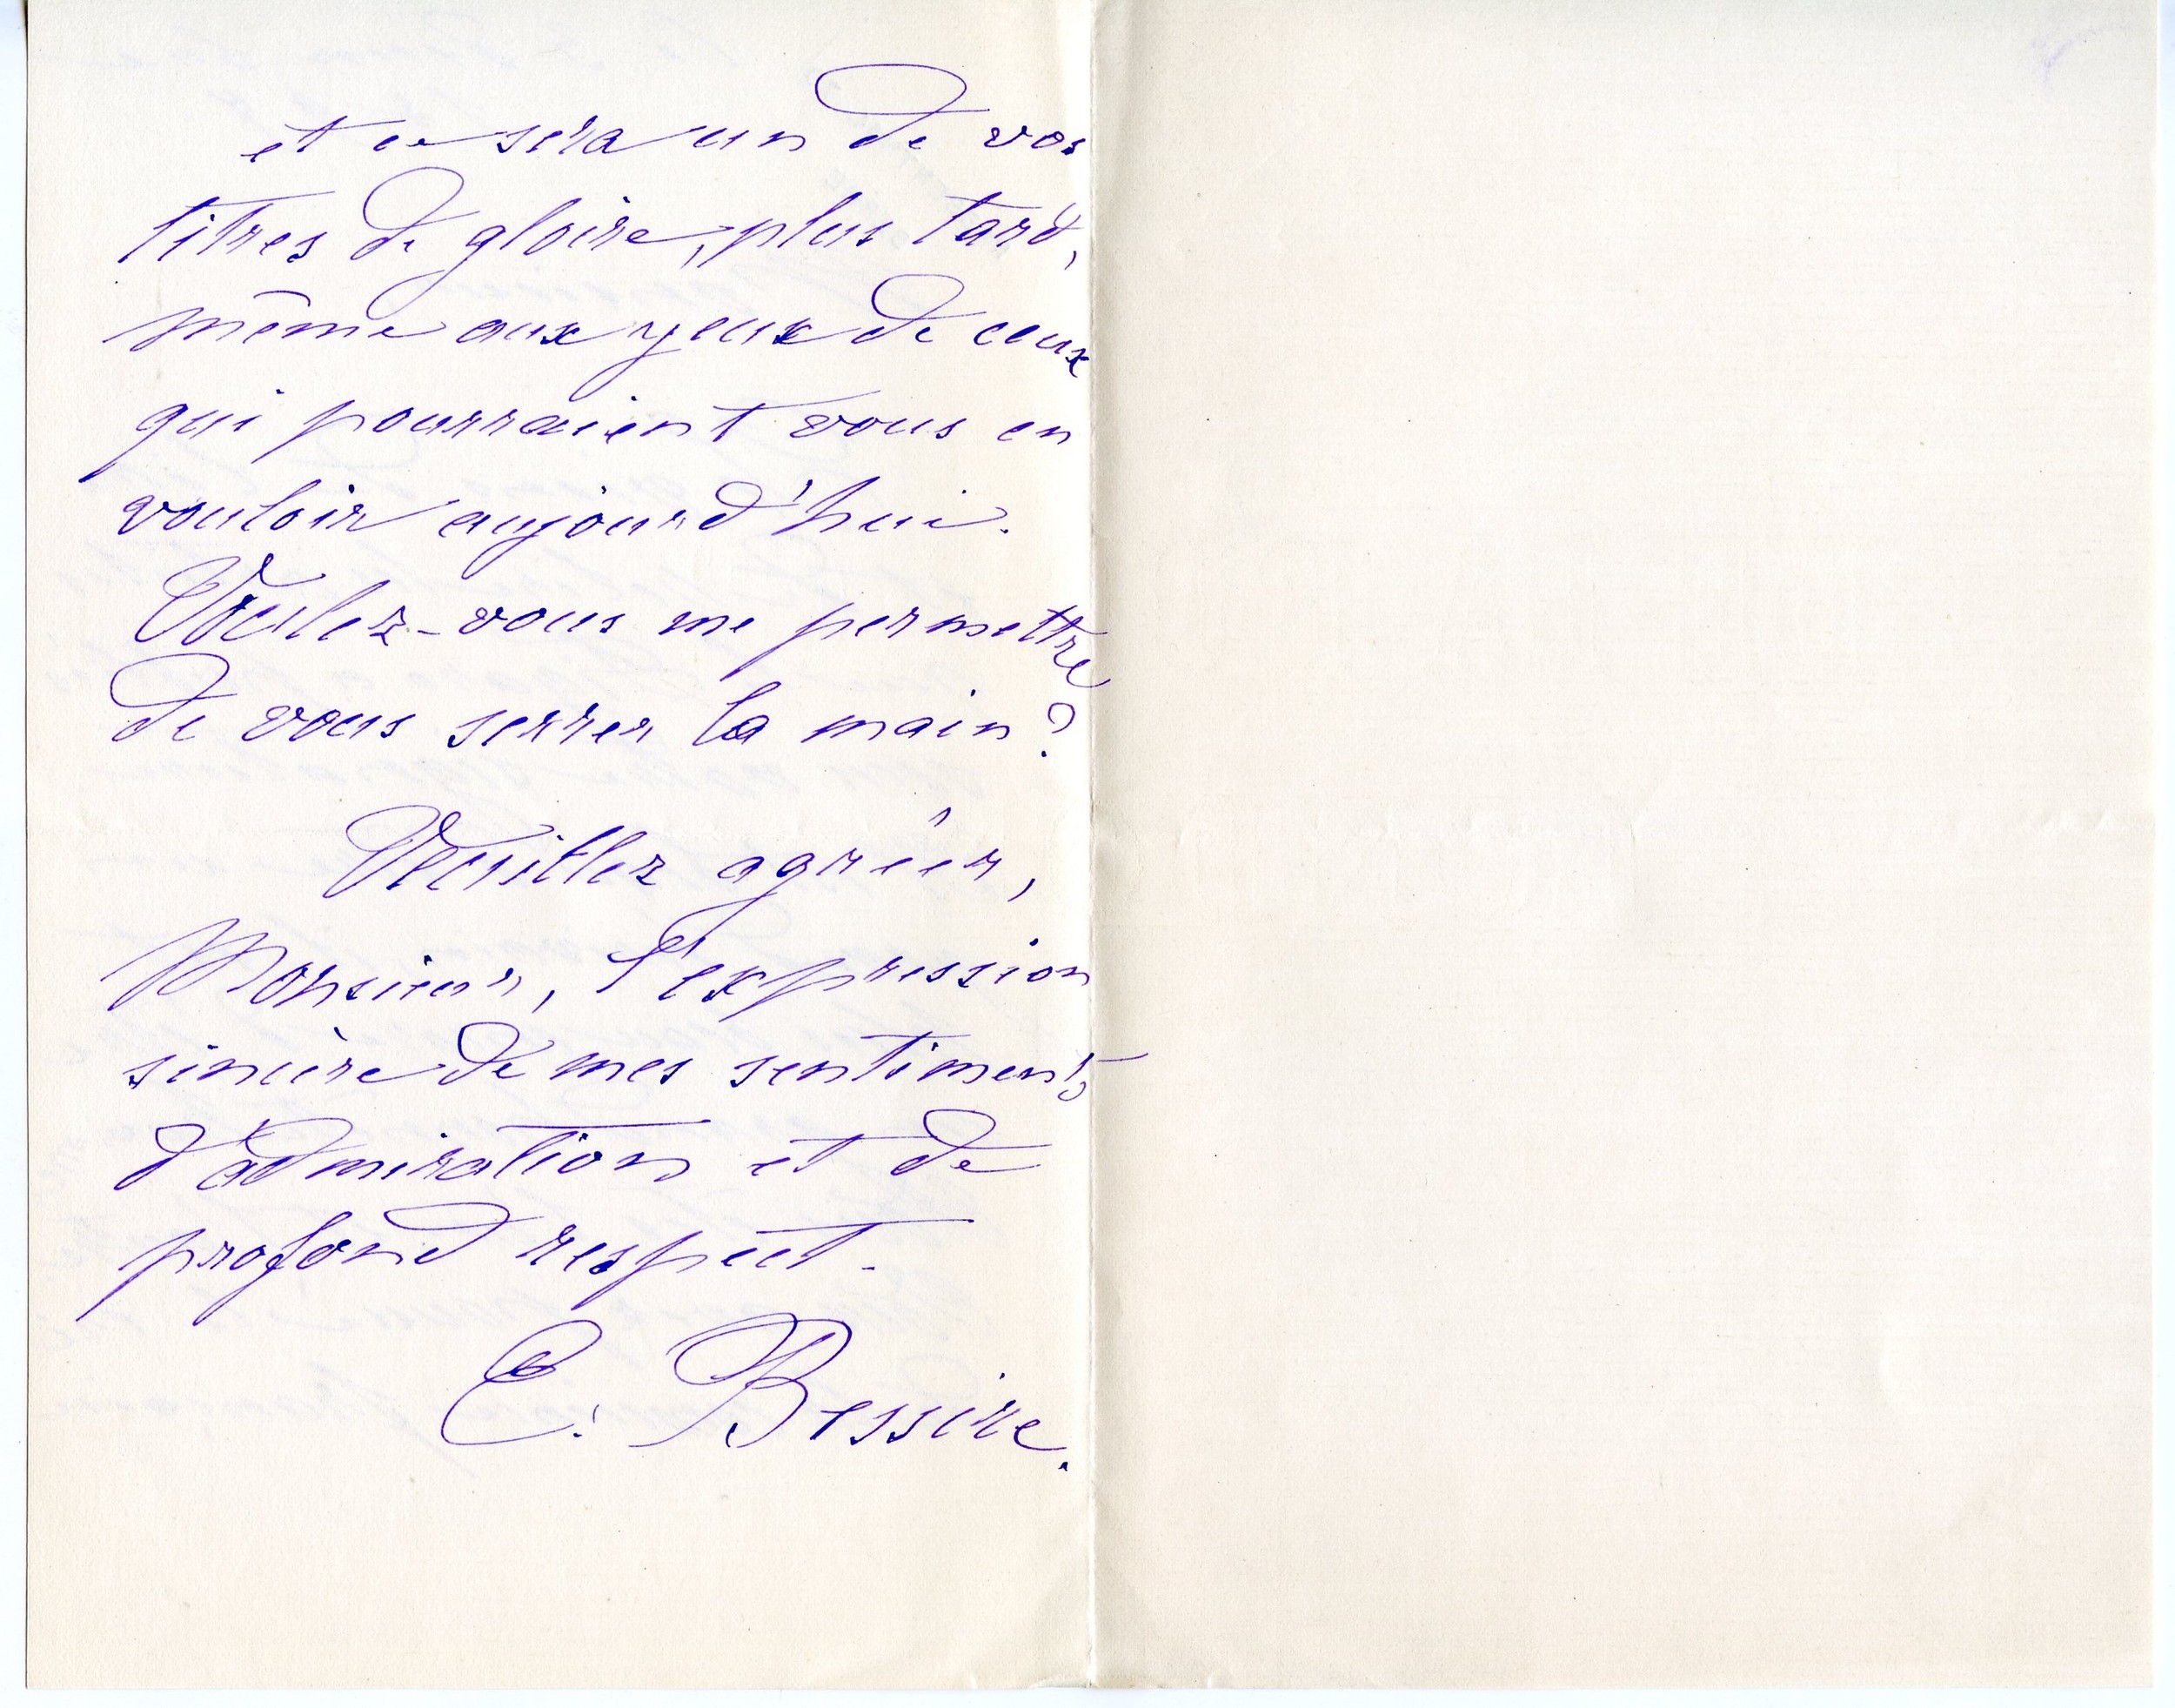 et ce sera un de vos
titres de gloire, plus tard,
même aux yeux de ceux
qui pourraient vous en
vouloir aujourd'hui.
Voulez-vous me permettre
de vous serrer la main?
Veuillez agréer,
Monsieur, l'expression
sincère de mes sentiments
d'admiration et de
profond respect.
E. Bessire.